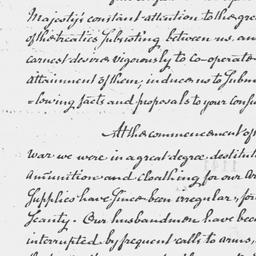 Majesty's constant attention to the gre
of the treaties subsisting between us, an
earnest desire vigorously to co-operate
attainment of them, induce us to Subm
-lowing facts and proposals to your consi
At the commencement of
war we were in a great degree destitut
Ammunition and cloathing for our Ar
Supplies have since been irregular, for
Scanty. Our husbandmen have bee
interrupted by frequent calls to arms,